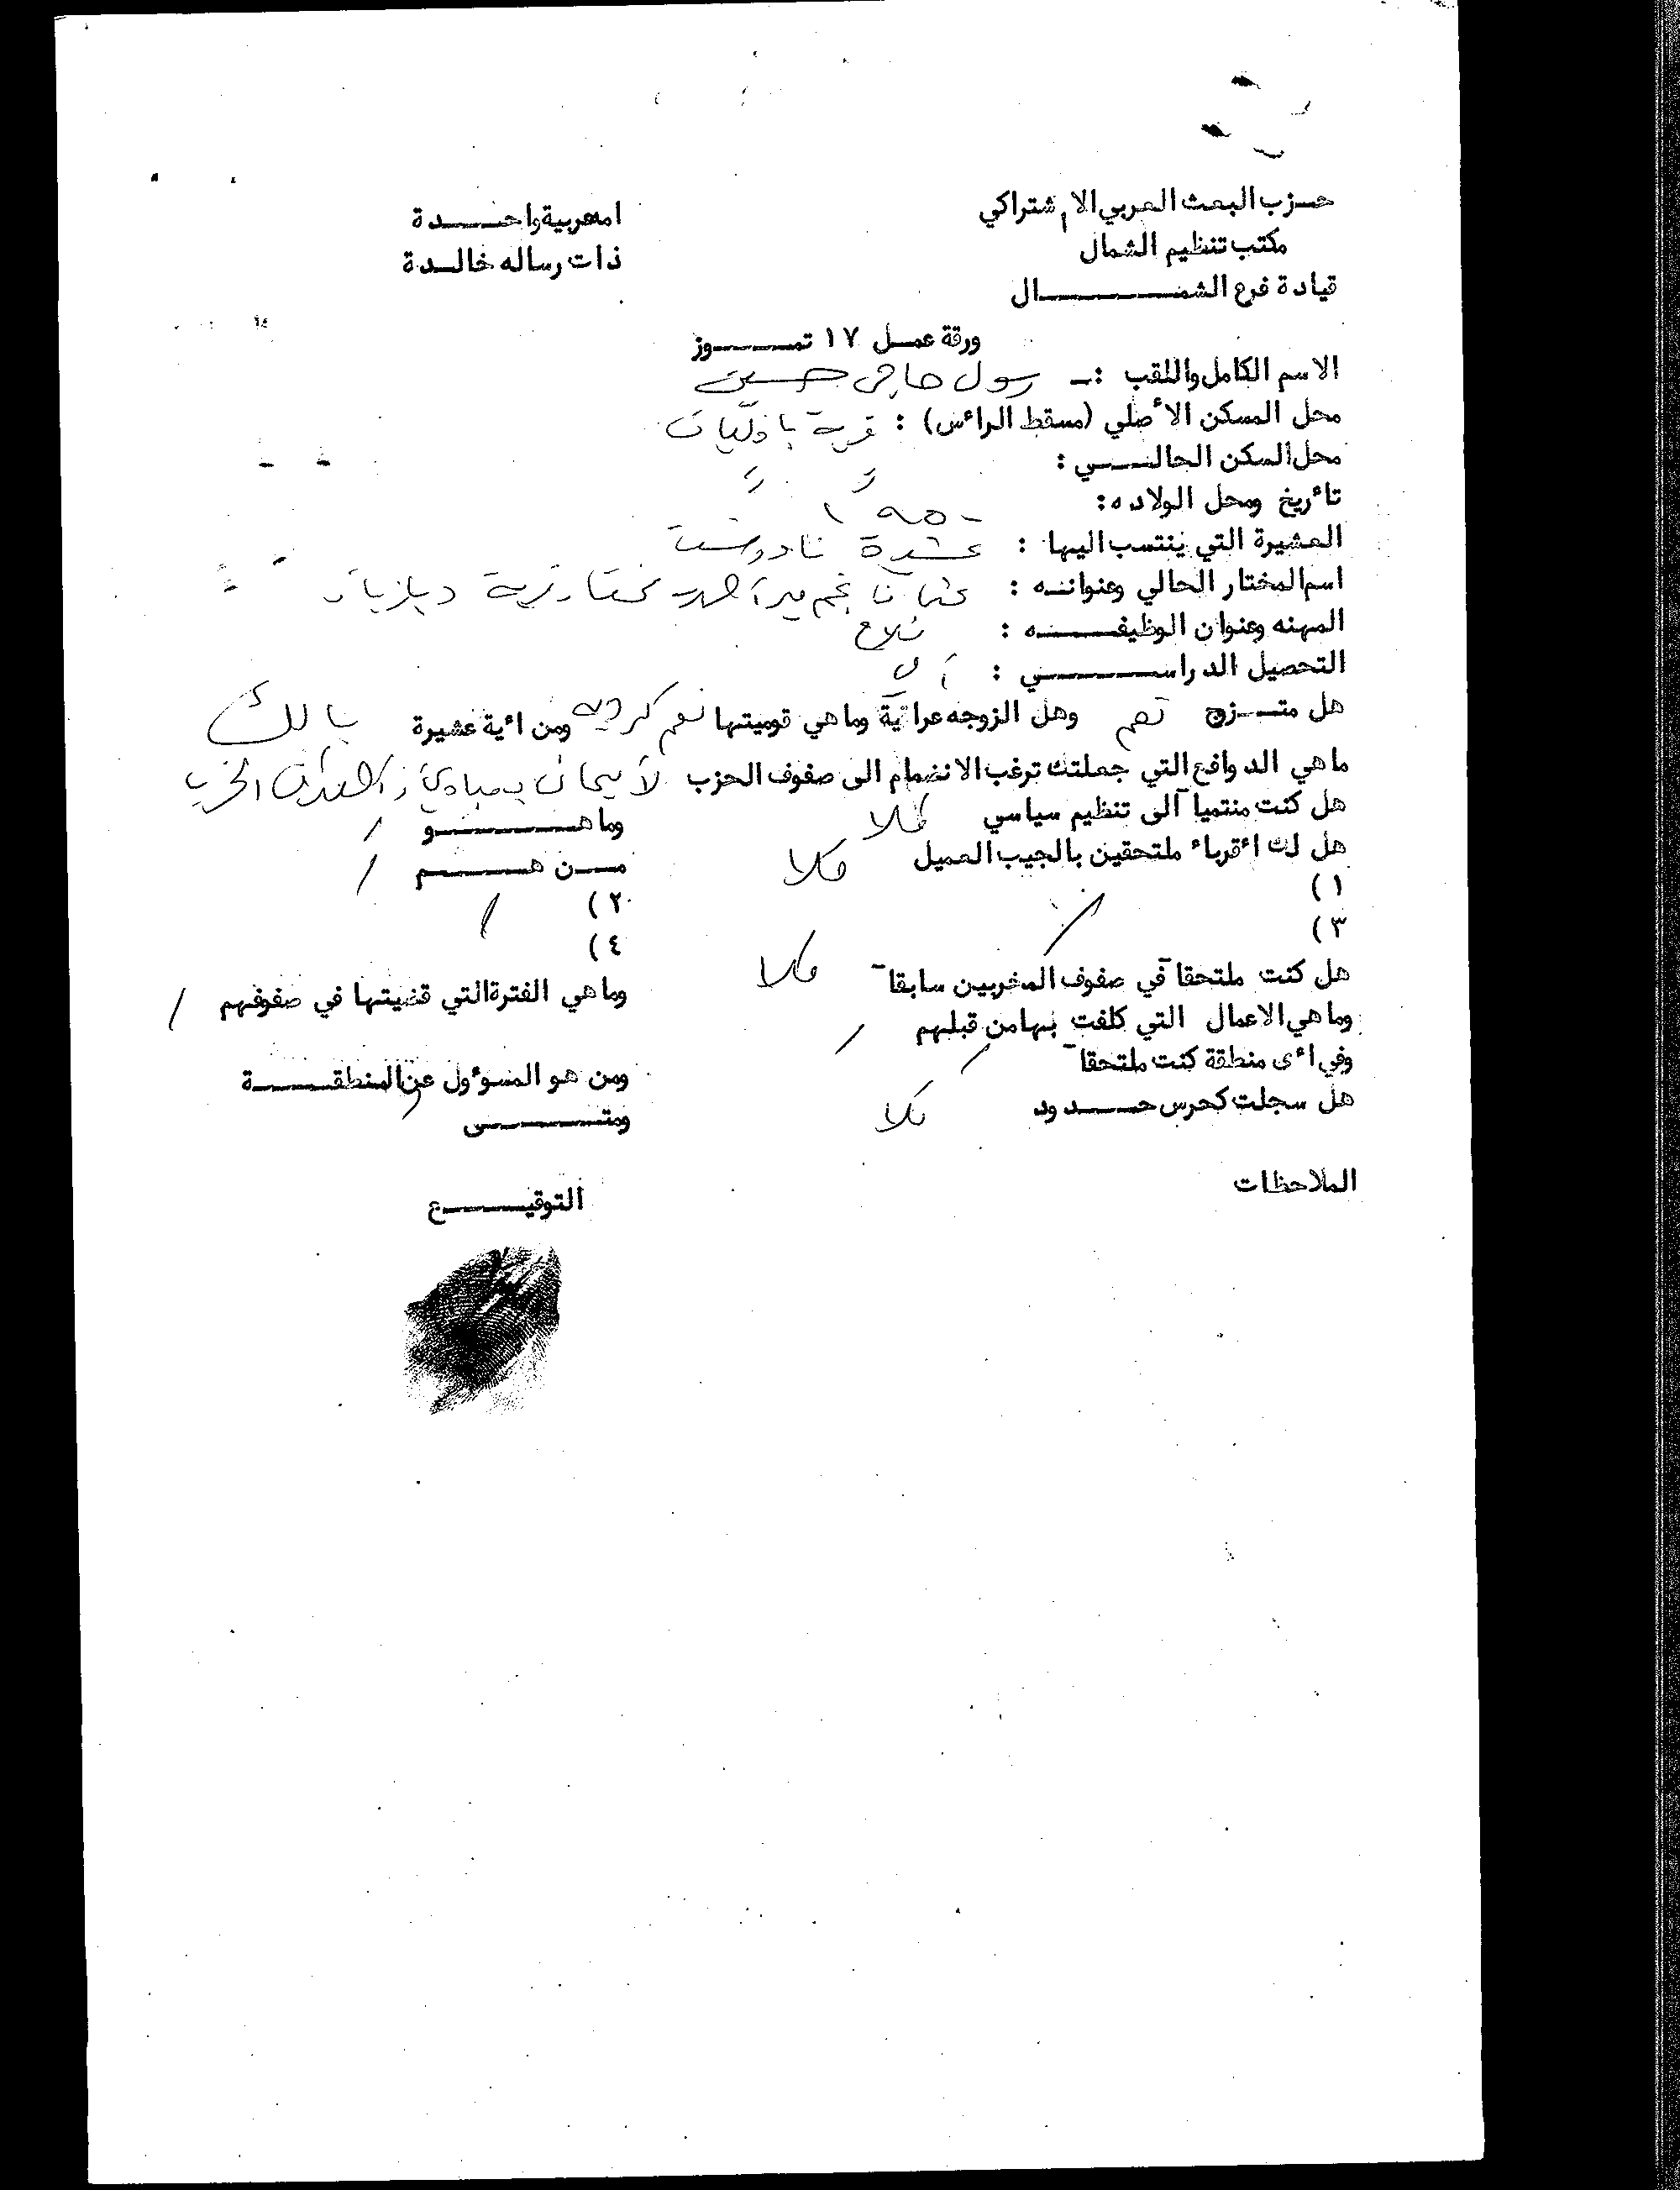 حـزب البعث العربي الاشتراكي
امة عربية واحـــدة
مكتب تنظيم الشمال
ذات رساله خالـدة
قيادة فرع الشمـــــــال
ورقة عمـل ١٧ تمـــوز
الاسم الكامل واللقب :ـ رسول حاجي حسين
محل المسكن الأصلي (مسقط الرأس) : قرية
محل السكن الحالـــي :
تأريخ ومحل الولاده : ١٩٥٠
العشيرة التي ينتسب اليها : عشيرة
اسم المختار الحالي وعنوانـه : عثمان مختار قرية
المهنه وعنوان الوظيفــــه : فلاح
التحصيل الدراســـــي : أمي
هل متـــزوج نعم وهل الزوجه عراقية وما هي قوميتها نعم كرديه ومن أية عشيرة بالك
ما هي الدوافع التي جعلتك ترغب الانضمام الى صفوف الحزب لأيمان بمبادئ الحزب
هل كنت منتمياً الى تنظيم سياسي كلا وما هـــــــو /
هل لك أقرباء ملتحقين بالجيب العميل كلا مــن هـــــم /
١) ٢) /
٣) ٤)
هل كنت ملتحقاً في صفوف المخربين سابقاً كلا وما هي الفترة التي قضيتها في صفوفهم /
وما هي الاعمال التي كلفت بها من قبلهم /
وفي أى منطقة كنت ملتحقاً / ومن هو المسؤول عن المنطقــــة
هل سجلت كحرس حـــدود كلا ومتـــــــى
الملاحظات
التوقيـــــع